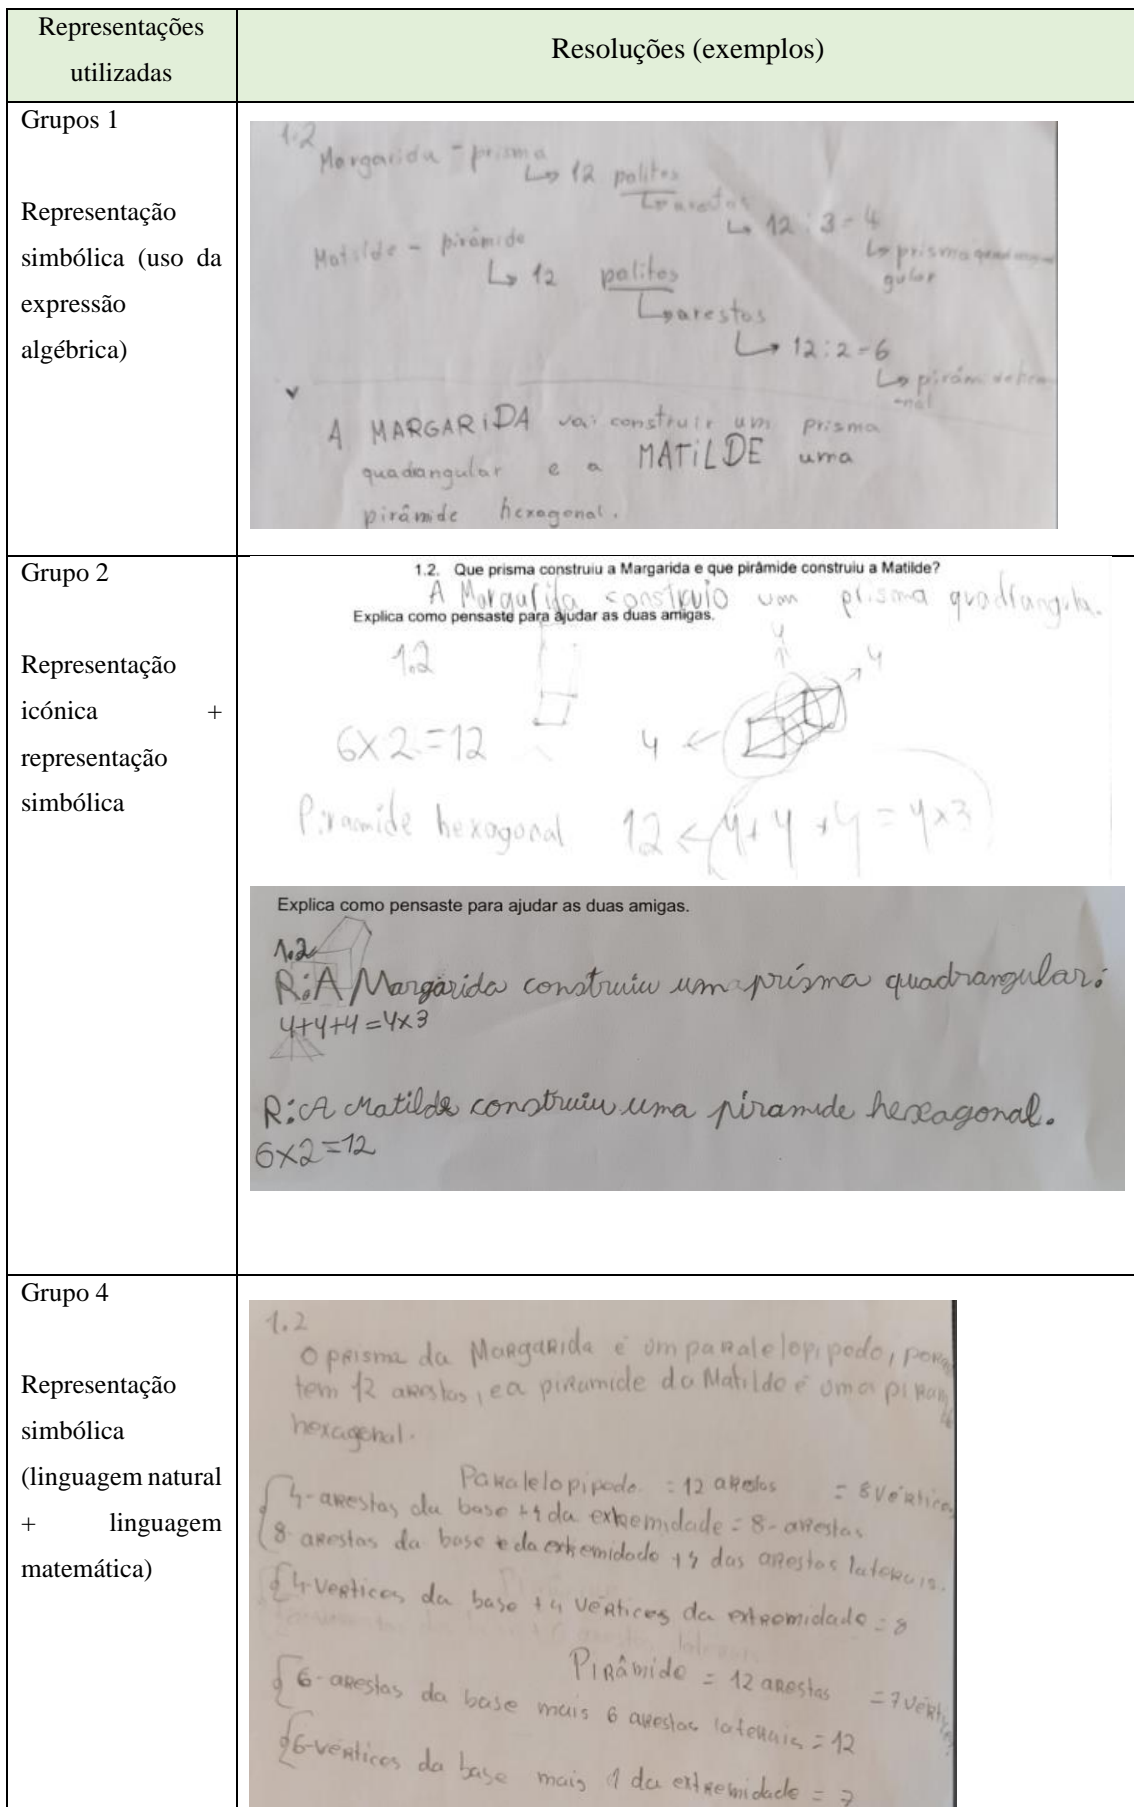 Representações
utilizadas
Resoluções (exemplos)
Grupos 1
Representação
simbólica (uso da
expressão
algébrica)
1.2
Margarida - prisma
↳ 12 palitos
↳ arestas
↳ 12 : 3 = 4
↳ prisma quadran
gular
Matilde - pirâmide
↳ 12 palitos
↳ arestas
↳ 12 : 2 = 6
↳ pirâm
onal
A MARGARiDA vai construir um prisma
quadrangular e a MATiLDE uma
pirâmide hexagonal.
Grupo 2
Representação
icónica +
representação
simbólica
1.2. Que prisma construiu a Margarida e que pirâmide construiu a Matilde?
A Margarida construio um prisma quadrangula.
Explica como pensaste para ajudar as duas amigas.
1.2
4
4
6x2=12
4
Piramide hexagonal 12 ← 4+4+4=4x3
Explica como pensaste para ajudar as duas amigas.
1.2
R: A Margarida construiu um prisma quadrangular.
4+4+4=4x3
R: A Matilde construiu uma piramide hexagonal.
6x2=12
Grupo 4
Representação
simbólica
(linguagem natural
+ linguagem
matemática)
1.2
O prisma da Margarida é um paralelopipedo, porq
tem 12 arestas, e a piramide da Matilde é uma piram
hexagonal.
Paralelopipedo = 12 arestas = 8 vértices
4-arestas da base +4 da extremidade = 8-arestas
8-arestas da base e da extremidade +4 das arestas laterais.
4-vertices da base +4 vértices da extremidade = 8
Pirâmide = 12 arestas = 7 vérti
6-arestas da base mais 6 arestas laterais = 12
6-vértices da base mais 1 da extremidade = 7